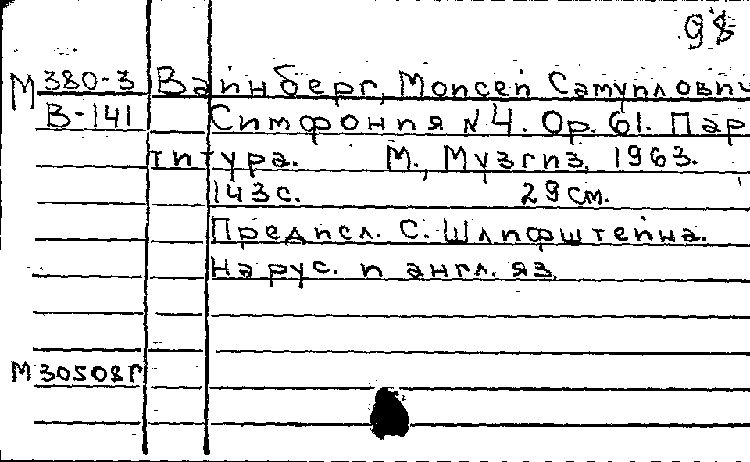 98
М 380-3 Вайнберг, Моисей Самуилович
В-141 Симфония № 4. Op. 61. Пар
титура. М., Музгиз. 1963.
143 с. 29 см.
Предисл. С. Шлифштейна.
На рус. и англ. яз.
М 30508г